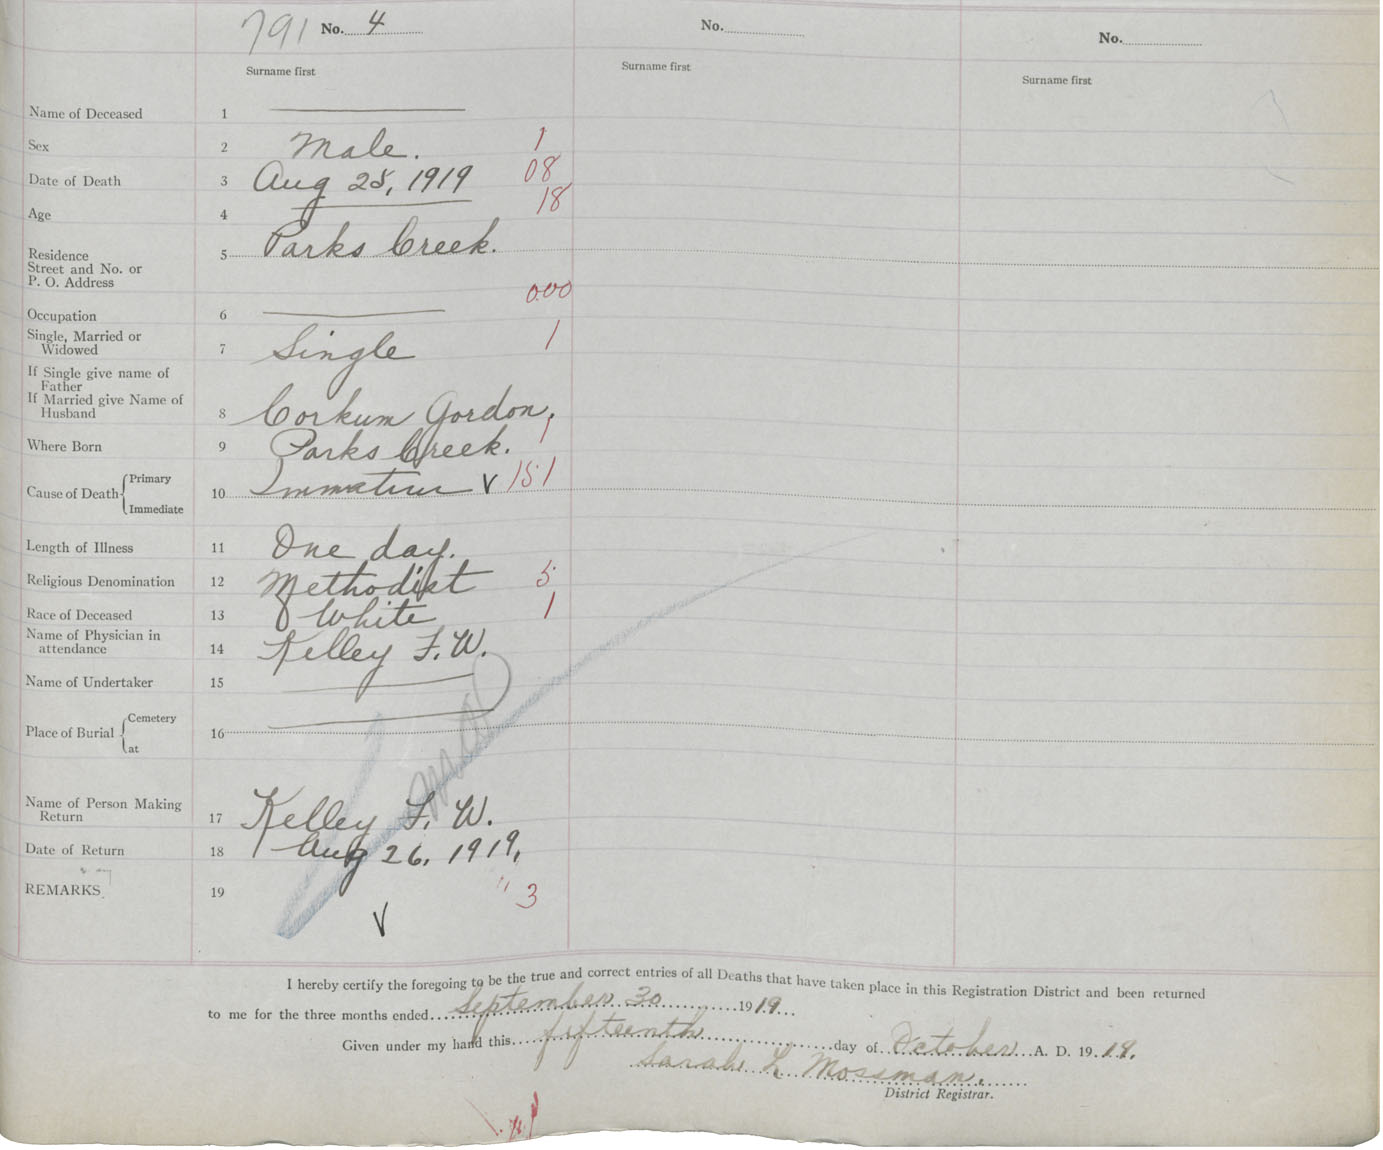 791 No. 4
No.
No.
Surname first
Surname first
Surname first
Name of Deceased 1
Sex 2 Male. 1
Date of Death 3 Aug 25, 1919 08
Age 4 18
Residence 5 Parks Creek.
Street and No. or
P. O. Address
000
Occupation 6
Single, Married or
Widowed 7 Single 1
If Single give name of
Father
If Married give Name of
Husband 8 Corkum Gordon.
Where Born 9 Parks Creek. 1
Cause of Death Primary
Immediate 10 Immature V 151
Length of Illness 11 One day.
Religious Denomination 12 Methodist 5
Race of Deceased 13 White 1
Name of Physician in
attendance 14 Kelley F. W.
Name of Undertaker 15
Place of Burial Cemetery
at 16
Name of Person Making
Return 17 Kelley F. W.
Date of Return 18 Aug 26, 1919,
REMARKS 19 " 3
V
I hereby certify the foregoing to be the true and correct entries of all Deaths that have taken place in this Registration District and been returned
to me for the three months ended September 30 1919
Given under my hand this fifteenth day of October A. D. 1919.
Sarah L Mossman.
District Registrar.